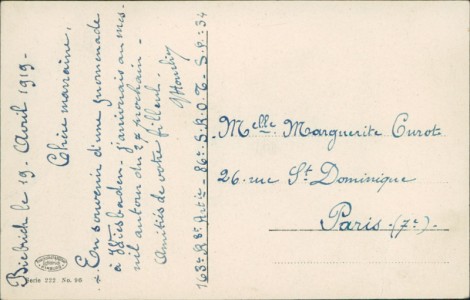 Biebrich le 19. Avril 1919-
Chère marraine,
En souvenir d'une promenade
à Wiesbaden. J'arriverais au mes-
nil autour du 27 prochain-
Amitiés de votre filleul.
163e R.A. - 86e S.R.O.T. - S.P.: 34
Melle Marguerite Curot
26. rue St Dominique
Paris (7e)
Serie 222 No. 96